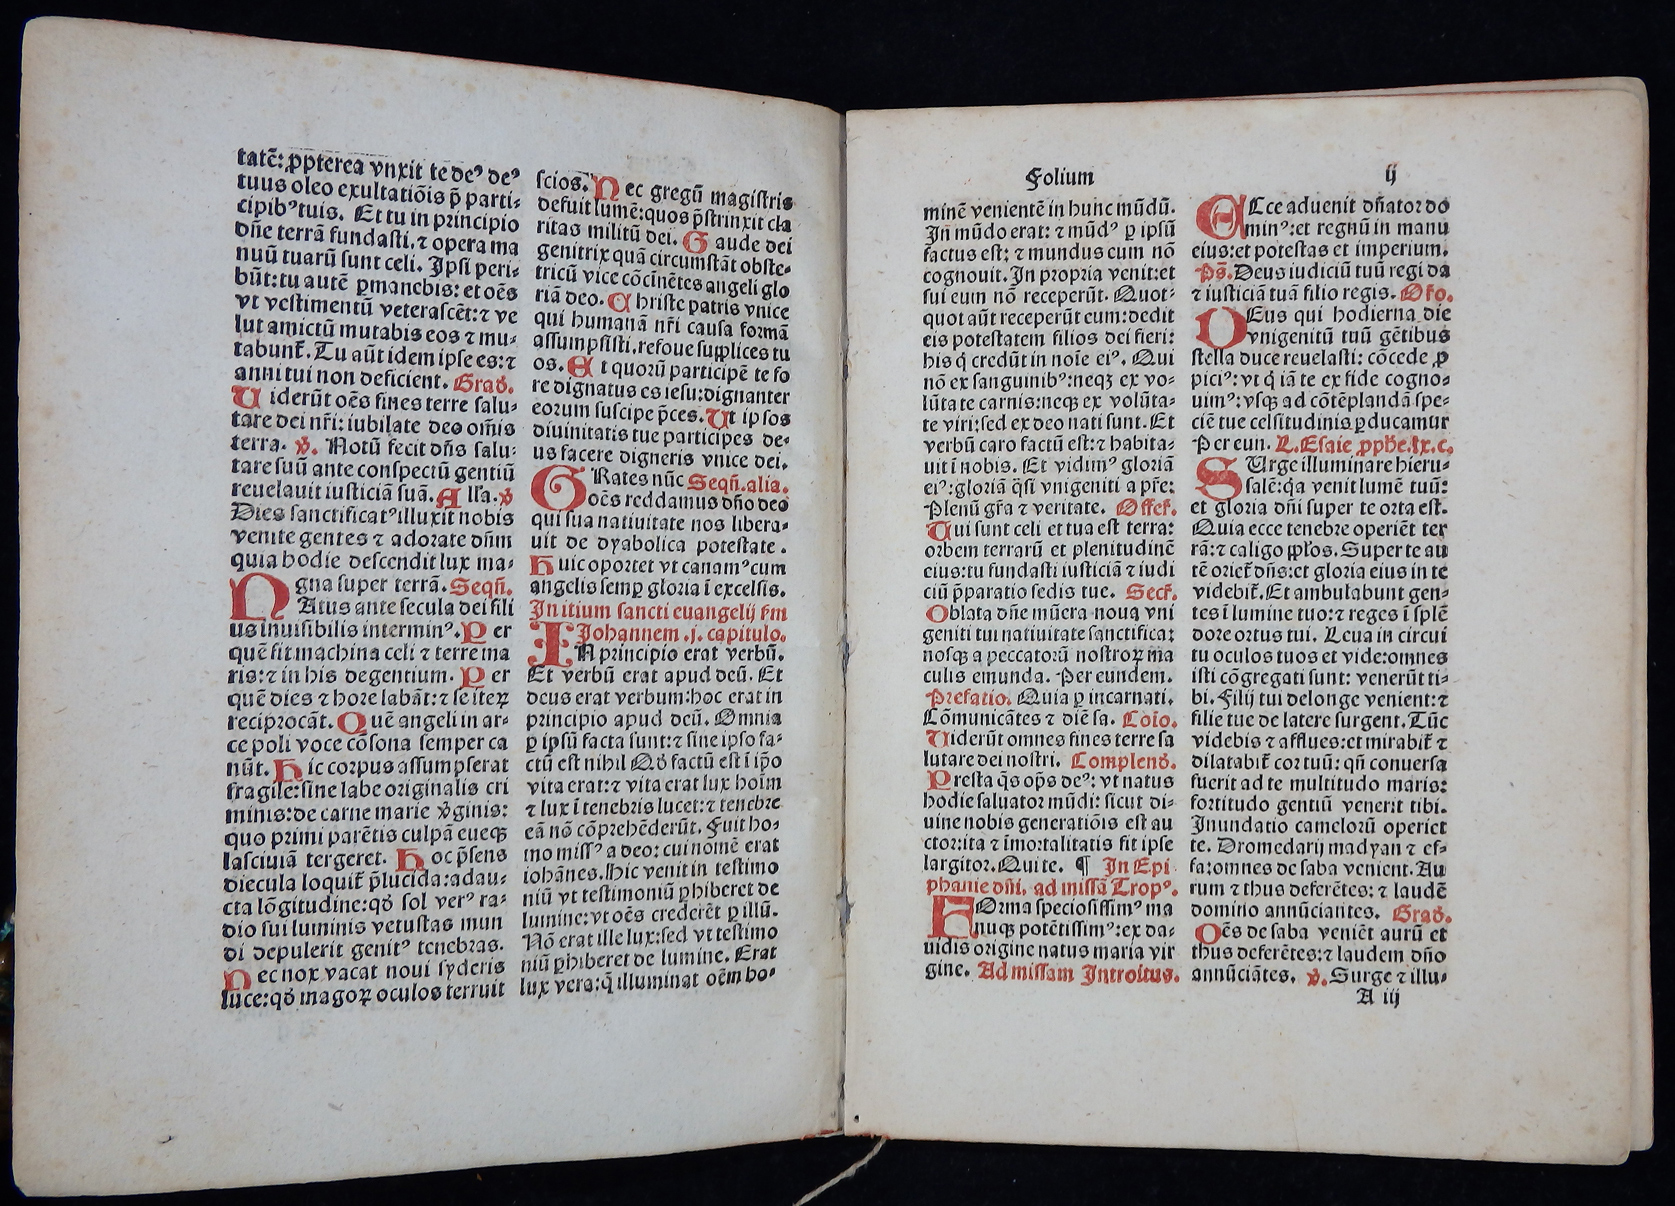 tatē: ꝓpterea vnxit te deꝰ deꝰ
tuus oleo exultatiōis p̄ parti⸗
cipibꝰ tuis. Et tu in principio
dn̄e terrā fundasti. ⁊ opera ma
nuū tuarū sunt celi. Ipsi peri⸗
būt: tu autē ꝑmanebis: et oēs
vt vestimentū veterascēt: ⁊ ve
lut amictū mutabis eos ⁊ mu⸗
tabunt̄. Tu aūt idem ipse es: ⁊
anni tui non deficient. Grad̄.
Uiderūt oēs fines terre salu⸗
tare dei nr̄i: iubilate deo om̄is
terra. v̄. Notū fecit dn̄s salu⸗
tare suū ante conspectū gentiū
reuelauit iusticiā suā. All'a. v̄
Dies sanctificatꝰ illuxit nobis
venite gentes ⁊ adorate dn̄m
quia hodie descendit lux ma⸗
gna super terrā. Seqn̄.
NAtus ante secula dei fili
us inuisibilis interminꝰ. Per
quē fit machina celi ⁊ terre ma
ris: ⁊ in his degentium. Per
quē dies ⁊ hore labāt: ⁊ se iteꝝ
reciprocāt. Quē angeli in ar⸗
ce poli voce cōsona semper ca
nūt. Hic corpus assumpserat
fragile: sine labe originalis cri
minis: de carne marie v̄ginis:
quo primi parētis culpā eueqꝫ
lasciuiā tergeret. Hoc p̄sens
diecula loquit̄ p̄lucida: adau⸗
cta lōgitudine: qd̄ sol verꝰ ra⸗
dio sui luminis vetustas mun
di depulerit genitꝰ tenebras.
Nec nox vacat noui syderis
luce: qd̄ magoꝝ oculos terruit
scios. Nec gregū magistris
defuit lumē: quos p̄strinxit cla
ritas militū dei. Gaude dei
genitrix quā circumstāt obste⸗
tricū vice cōcinētes angeli glo
riā deo. Christe patris vnice
qui humanā nr̄i causa formā
assumpsisti. refoue supplices tu
os. Et quorū participē te fo
re dignatus es iesu: dignanter
eorum suscipe p̄ces. Ut ip sos
diuinitatis tue participes de⸗
us facere digneris vnice dei.
GRates nūc Seqn̄. alia.
oēs reddamus dn̄o deo
qui sua natiuitate nos libera⸗
uit de dyabolica potestate.
Huic oportet vt canamꝰ cum
angelis semꝑ gloria ī excelsis.
Initium sancti euangelij s̄m
Johannem .j. capitulo.
IN principio erat verbū.
Et verbū erat apud deū. Et
deus erat verbum: hoc erat in
principio apud deū. Omnia
ꝑ ipsū facta sunt: ⁊ sine ipso fa⸗
ctū est nihil Qd̄ factū est ī ip̄o
vita erat: ⁊ vita erat lux hoīm
⁊ lux ī tenebris lucet: ⁊ tenebre
eā nō cōprehēderūt. Fuit ho⸗
mo missꝰ a deo: cui nomē erat
iohānes. Hic venit in testimo
niū vt testimoniū ꝑhiberet de
lumine: vt oēs crederēt ꝑ illū.
Nō erat ille lux: sed vt testimo
niū ꝑhiberet de lumine. Erat
lux vera: q̄ illuminat oēm ho⸗
Folium ij
minē venientē in hunc mūdū.
In mūdo erat: ⁊ mūdꝰ ꝑ ipsū
factus est: ⁊ mundus eum nō
cognouit. In propria venit: et
sui eum nō receperūt. Quot⸗
quot aūt receperūt eum: dedit
eis potestatem filios dei fieri:
his q̄ credūt in noīe eiꝰ. Qui
nō ex sanguinibꝰ: neqꝫ ex vo⸗
lūtate carnis: neqꝫ ex volūta⸗
te viri: sed ex deo nati sunt. Et
verbū caro factū est: ⁊ habita⸗
uit ī nobis. Et vidimꝰ gloriā
eiꝰ: gloriā q̄si vnigeniti a pr̄e:
Plenū gr̄a ⁊ veritate. Offer̄.
Tui sunt celi et tua est terra:
orbem terrarū et plenitudinē
eius: tu fundasti iusticiā ⁊ iudi
ciū p̄paratio sedis tue. Secr̄.
Oblata dn̄e mūera noua vni
geniti tui natiuitate sanctifica:
nosqꝫ a peccatorū nostroꝝ ma
culis emunda. Per eundem.
Prefatio. Quia ꝑ incarnati.
Cōmunicātes ⁊ diē sa. Cōio.
Uiderūt omnes fines terre sa
lutare dei nostri. Complend̄.
Presta q̄s op̄s deꝰ: vt natus
hodie saluator mūdi: sicut di⸗
uine nobis generatiōis est au
ctor: ita ⁊ īmortalitatis sit ipse
largitor. Qui te. ¶ In Epi
phanie dn̄i. ad missā Tropꝰ.
FOrma speciosissimꝰ ma
nuqꝫ potētissimꝰ: ex da⸗
uidis origine natus maria vir
gine. Ad missam Introitus.
ECce aduenit dn̄ator do
minꝰ: et regnū in manu
eius: et potestas et imperium.
Ps̄. Deus iudiciū tuū regi da
⁊ iusticiā tuā filio regis. Or̄o.
DEus qui hodierna die
vnigenitū tuū gētibus
stella duce reuelasti: cōcede ꝓ
piciꝰ: vt q̄ iā te ex fide cogno⸗
uimꝰ: vsqꝫ ad cōtēplandā spe⸗
ciē tue celsitudinis ꝑducamur
Per eun. L. Esaie ꝓph̄e. lx. c.
SUrge illuminare hieru⸗
salē: q̄a venit lumē tuū:
et gloria dn̄i super te orta est.
Quia ecce tenebre operiēt ter
rā: ⁊ caligo pp̄l'os. Super te au
tē oriet̄ dn̄s: et gloria eius in te
videbit̄. Et ambulabunt gen⸗
tes ī lumine tuo: ⁊ reges ī splē
dore ortus tui. Leua in circui
tu oculos tuos et vide: omnes
isti cōgregati sunt: venerūt ti⸗
bi. Filij tui de longe venient: ⁊
filie tue de latere surgent. Tūc
videbis ⁊ afflues: et mirabit̄ ⁊
dilatabit̄ cor tuū: qn̄ conuersa
fuerit ad te multitudo maris:
fortitudo gentiū venerit tibi.
Inundatio camelorū operiet
te. Dromedarij madyan ⁊ ef⸗
fa: omnes de saba venient. Au
rum ⁊ thus deferētes: ⁊ laudē
domino annūciantes. Grad̄.
Oēs de saba veniēt aurū et
thus deferētes: ⁊ laudem dn̄o
annūciātes. v̄. Surge ⁊ illu⸗
A iij